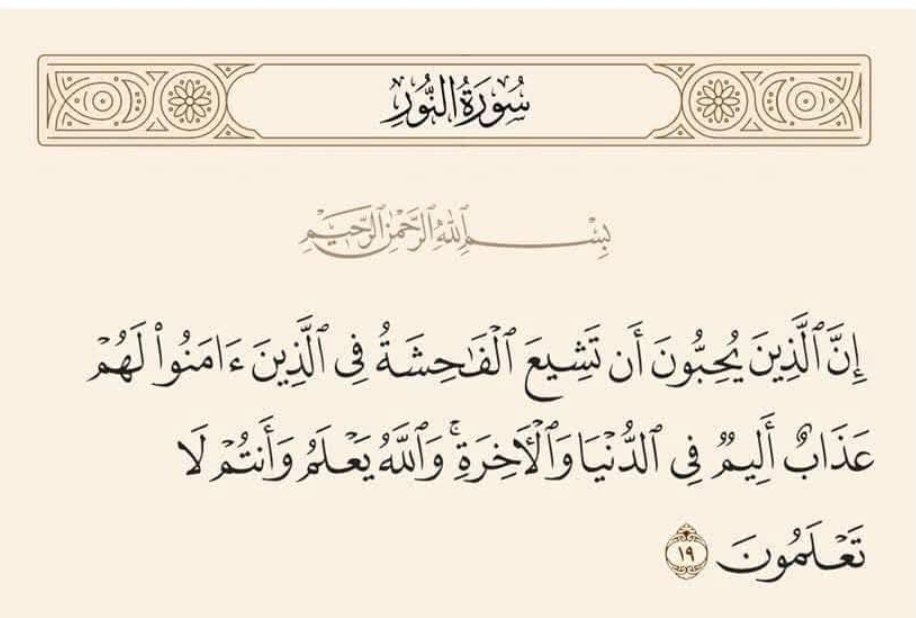 سُورَةُ النُّورِ
بِسْمِ ٱللَّهِ ٱلرَّحْمَٰنِ ٱلرَّحِيمِ
إِنَّ ٱلَّذِينَ يُحِبُّونَ أَن تَشِيعَ ٱلْفَٰحِشَةُ فِى ٱلَّذِينَ ءَامَنُوا۟ لَهُمْ
عَذَابٌ أَلِيمٌ فِى ٱلدُّنْيَا وَٱلْءَاخِرَةِ ۚ وَٱللَّهُ يَعْلَمُ وَأَنتُمْ لَا
تَعْلَمُونَ ١٩